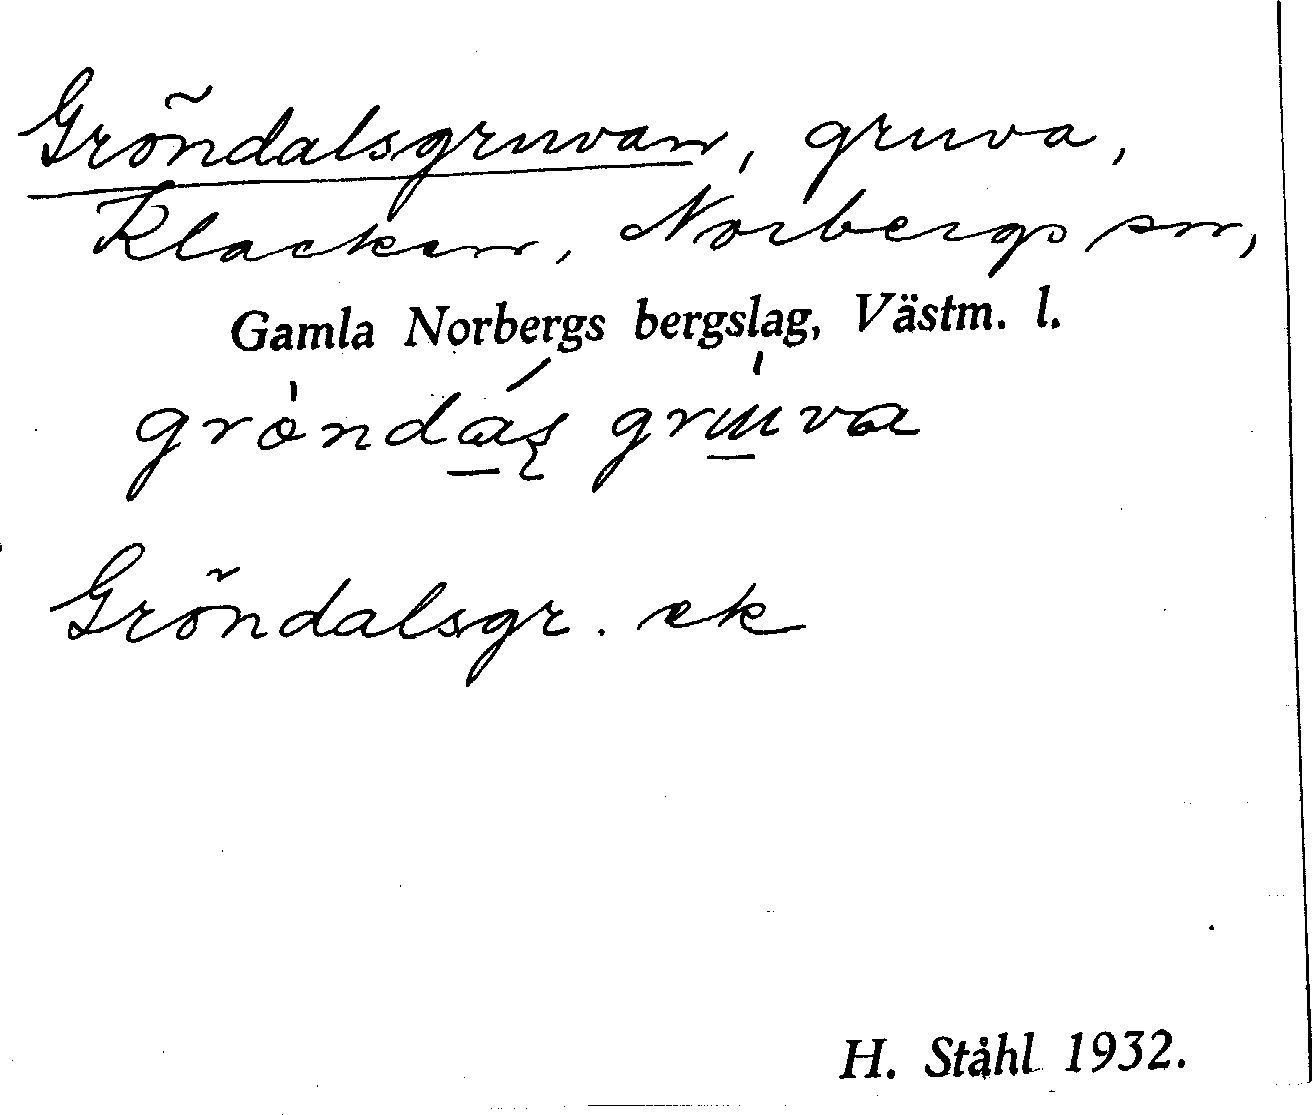 Gröndalsgruvan, gruva,
Klacken, Norbergs sn,
Gamla Norbergs bergslag, Västm. l.
gröndas gruva
Gröndalsgr. ek
H. Ståhl 1932.